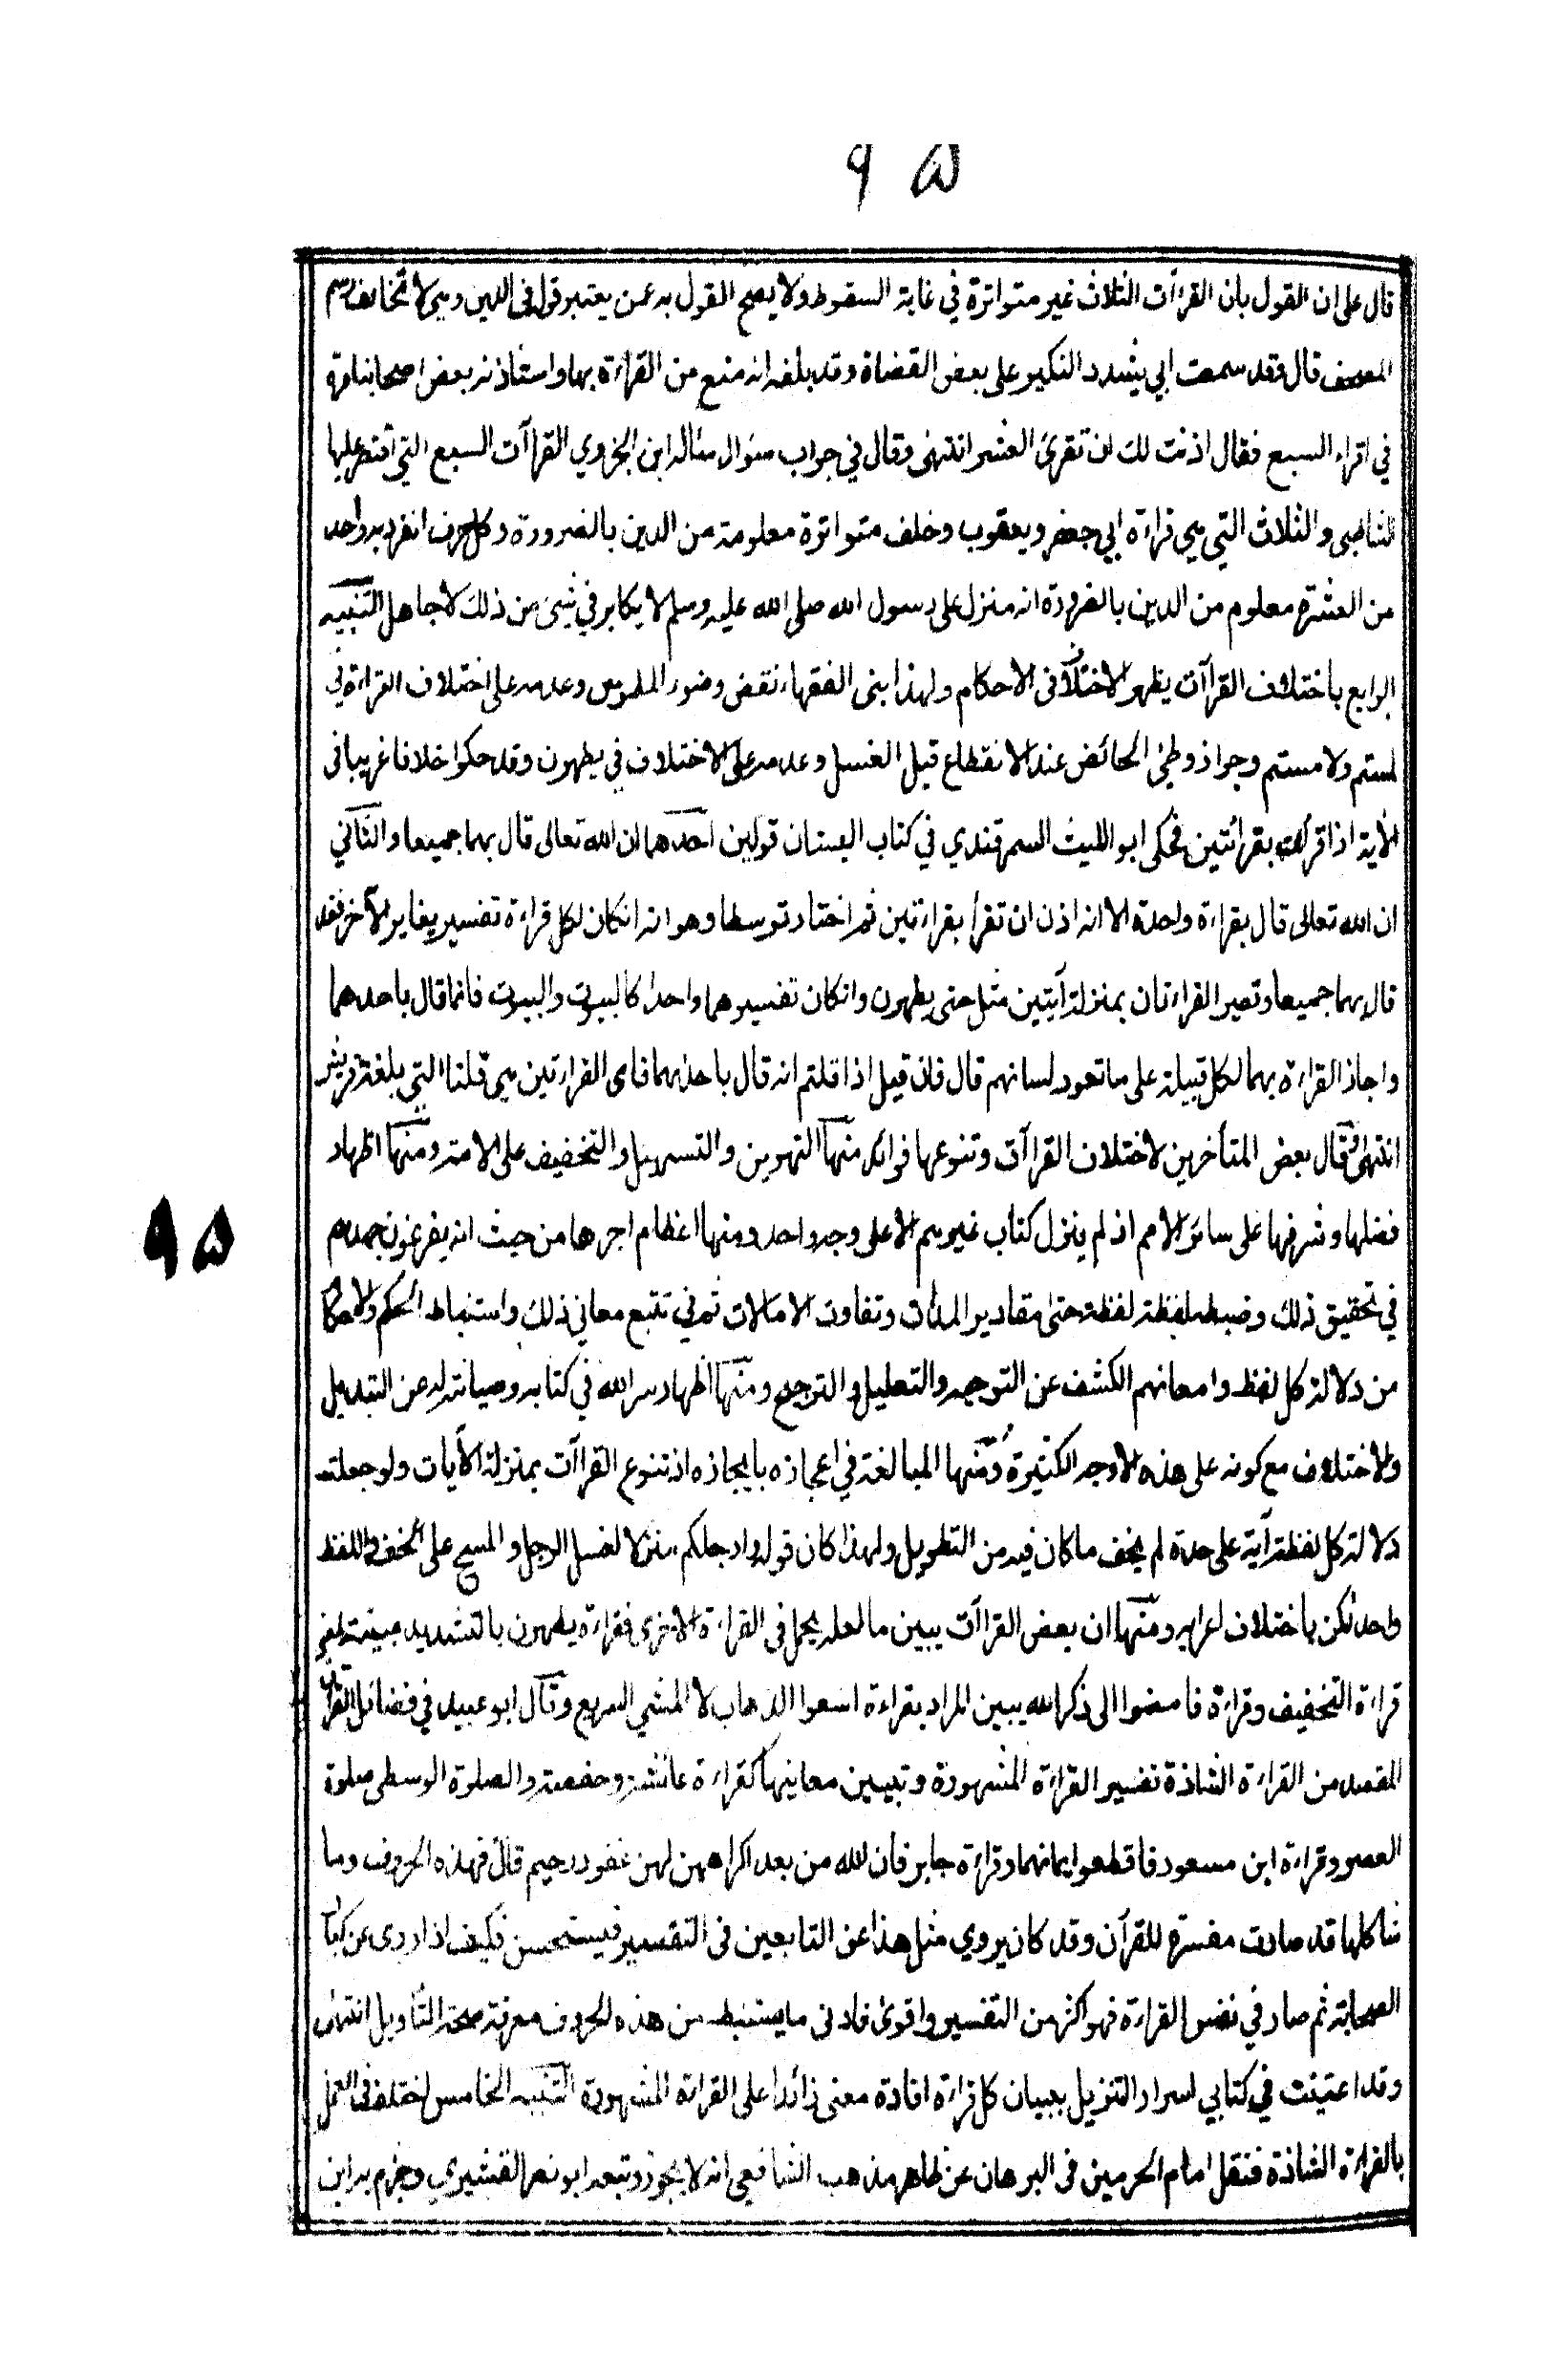 ۹۵
قال على ان القول بان القراآت الثلاث غير متواترة في غاية السقوط ولا يصح القول به عمن يعتبر قوله فى الدين وهي لا تخالف رسم
المصحف قال وقد سمعت ابي يشدد النكير على بعض القضاة وقد بلغه انه منع من القراءة بها واستاذنه بعض اصحابنا مرة
في اقراء السبع فقال اذنت لك ان تقرئ العشر انتهى وقال في جواب سئوال سئاله ابن الجزري القراآت السبع التي اقتصر عليها
الشاطبى والثلاث التي هي قراءة ابي جعفر ويعقوب وخلف متواترة معلومة من الدين بالضرورة وكل حرف انفرد به واحد
من العشرة معلوم من الدين بالضرورة انه منزل على رسول الله صلى الله عليه وسلم لا يكابر في شئ من ذلك الا جاهل التنبيه
الرابع باختلاف القراآت يظهر الاختلاف فى الاحكام ولهذا بنى الفقهاء نقض وضوء الملموس وعدمه على اختلاف القراءة في
لمستم ولامستم وجواز وطئ الحائض عند الانقطاع قبل الغسل وعدمه على الاختلاف في يطهرن وقد حكوا خلافا غريبا فى
الأية اذا قرأت بقرائتين فحكى ابو الليث السمرقندي في كتاب البستان قولين احدهما ان الله تعالى قال بهما جميعا والثاني
ان الله تعالى قال بقراءة واحدة الا انه اذن ان تقرأ بقراءتين ثم اختار توسطا وهو انه انكان لكل قراءة تفسير يغاير الآخر فقد
قال بهما جميعا وتصير القراءتان بمنزلة آيتين مثل حتى يطهرن وانكان تفسيرهما واحدا كالبيوت والبيوت فانما قال باحدهما
واجاز القراءة بهما لكل قبيلة على ما تعود لسانهم قال فان قيل اذا قلتم انه قال باحدهما فاى القراءتين هي قلنا التي بلغة قريش
انتهى وقال بعض المتأخرين لاختلاف القراآت وتنوعها فوائد منها التهوين والتسهيل والتخفيف على الامة ومنها اظهار
فضلها وشرفها على سائر الامم اذ لم ينزل كتاب غيرهم الا على وجه واحد ومنها اعظام اجرها من حيث انه يفرغون جهدهم
۹۵
في تحقيق ذلك وضبطه لفظة لفظة حتى مقادير المدات وتفاوت الامالات ثم في تتبع معاني ذلك واستنباط الحكم والاحكام
من دلالة كل لفظ وامعانهم الكشف عن التوجيه والتعليل والترجيح ومنها اظهار سر الله في كتابه وصيانته له عن التبديل
والاختلاف مع كونه على هذه الاوجه الكثيرة ومنها المبالغة في اعجازه بايجازه اذ تنوع القراآت بمنزلة الأيات ولو جعلت
دلالة كل لفظة آية على حدة لم يخف ما كان فيه من التطويل ولهذا كان قوله وارجلكم منزلا لغسل الرجل والمسح على الخف واللفظ
واحد لكن باختلاف اعرابه ومنها ان بعض القراآت يبين ما لعله يجمل فى القراءة الاخرى فقراءة يطهرن بالتشديد مبينة لمعنى
قراءة التخفيف وقراءة فامضوا الى ذكر الله يبين المراد بقراءة اسعوا الذهاب لا المشي السريع وقال ابو عبيد في فضائل القرآن
المقصد من القراءة الشاذة تفسير القراءة المشهورة وتبيين معانيها كقراءة عائشة وحفصة والصلوة الوسطى صلوة
العصر وقراءة ابن مسعود فاقطعوا ايمانهما وقراءة جابر فان الله من بعد اكراههن لهن غفور رحيم قال فهذه الحروف وما
شاكلها قد صارت مفسرة للقرآن وقد كان يروي مثل هذا عن التابعين فى التفسير فيستحسن فكيف اذا روى عن كبار
الصحابة ثم صار في نفس القراءة فهو اكثر من التفسير واقوى فادنى ما يستنبط من هذه الحروف معرفة صحة التأويل انتهى
وقد اعتنيت في كتابي اسرار التنزيل ببيان كل قراءة افادة معنى زائدا على القراءة المشهورة التنبيه الخامس اختلف فى العمل
بالقراءة الشاذة فنقل امام الحرمين فى البرهان عن ظاهر مذهب الشافعي انه لا يجوز وتبعه ابو نصر القشيري وجزم به ابن